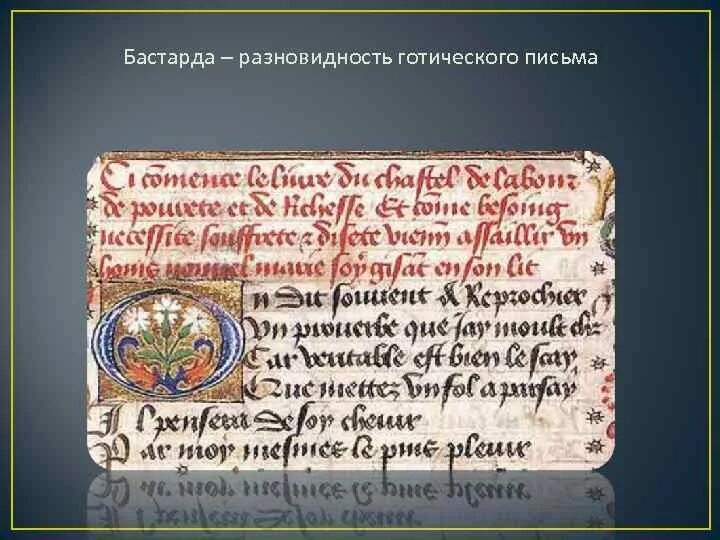 Бастарда – разновидность готического письма
Ci cōmence le liure du chastel de labour
de pouurete et de Richesse Et cōme besoing
necessite souffrete & disete vienn assaillir vn
home nouuel marie soy gisāt en son lit
On dit souuent & Reprochier
Vn prouerbe que jay moult chr
Car veritable est bien le scay
Que mettez vn fol a par say
Il pensera de soy cheuir
Par moy mesmes le puis pleuir